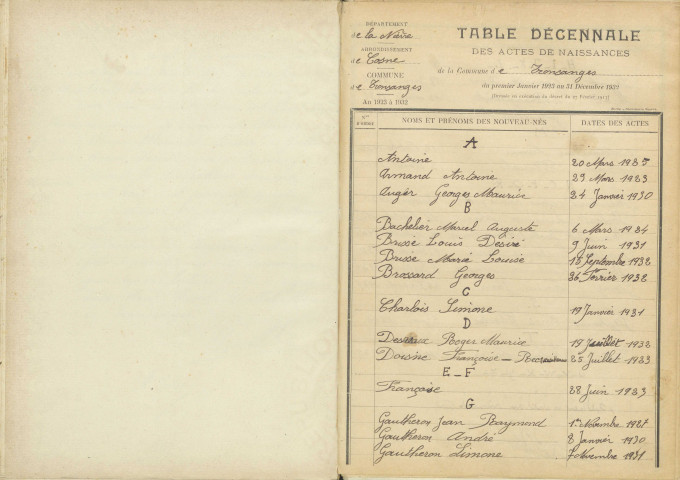 DÉPARTEMENT
de la Nièvre
ARRONDISSEMENT
de Cosne
COMMUNE
de Tronsanges
An 1923 à 1932
TABLE DÉCENNALE
DES ACTES DE NAISSANCES
de la Commune de Tronsanges
du premier Janvier 1923 au 31 Décembre 1932
NOMS ET PRÉNOMS DES NOUVEAU-NÉS DATES DES ACTES
A
Antoine 20 Mars 1925
Armand Antoine 29 Mars 1923
Auger Georges Maurice 24 Janvier 1930
B
Bachelier Marcel Auguste 6 Mars 1924
Brisse Louis Désiré 9 Juin 1931
Brisse Marie Louise 18 Septembre 1932
Brossard Georges 26 Février 1932
C
Charlois Simone 19 Janvier 1931
D
Roger Maurice 19 Juillet 1932
Doisne Françoise 25 Juillet 1923
E_F
Françoise 28 Juin 1923
G
Gautheron Jean Raymond 1er Novembre 1927
Gautheron André 8 Janvier 1930
Gautheron Simone 7 Novembre 1931